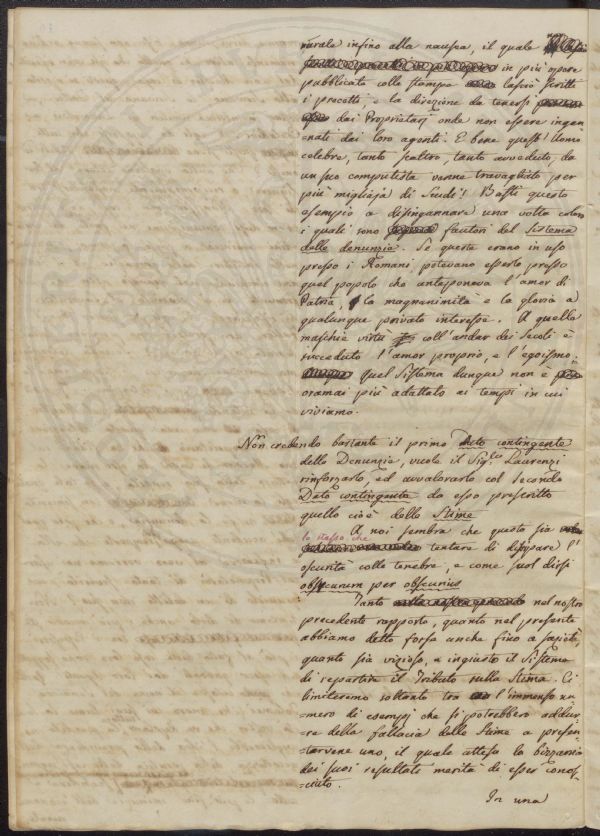 rurale insino alla nausea, il quale
in più opere
pubblicate colle stampe lasciò scritti
i precetti, e la direzione da tenersi
dai Proprietarj onde non essere ingan=
=nati dai loro agenti. E bene quest'Uomo
celebre, tanto scaltro, tanto avveduto, da
un suo computista venne travagliato per
più migliaja di Scudi! Basti questo
esempio a disingannare una volta coloro
i quali sono fautori del Sistema
delle denunzie. Se queste erano in uso
presso i Romani, potevano esserlo presso
quel popolo che anteponeva l'amor di
Patria, la magnanimità e la gloria a
qualunque privato interesse. A quelle
maschie virtù coll'andar dei Secoli è
succeduto l'amor proprio, e l'egoismo:
quel Sistema dunque non è
oramai più adattato ai tempi in cui
viviamo.
Non credendo bastante il primo Dato contingente
delle Denunzie, vuole il Sig.re Laurenzi
rinforzarlo, ed avvalorarlo col secondo
Dato contingente da esso prescritto
quello cioè delle Stime
A noi sembra che questo sia
lo stesso che
tentare di dissipare l'
oscurità colle tenebre, e come suol dirsi
obscurum per obscurius
Tanto nel nostro
precedente rapporto, quanto nel presente
abbiamo detto forse anche fino a sazietà,
quanto sia vizioso, e ingiusto il Sistema
di repartire il Tributo sulla Stima. Ci
limiteremo soltanto tra l'immenso nu=
=mero di esempj che si potrebbero addur=
=re della fallacia delle Stime a presen=
=tarvene uno, il quale attesa la bizzarria
dei suoi resultati merita di esser conos=
=ciuto.
In una